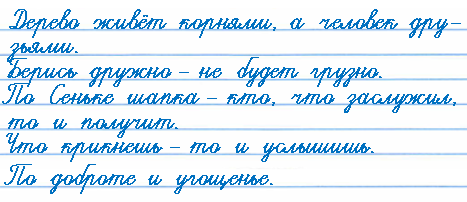 Дерево живёт корнями, а человек дру-
зьями.
Берись дружно – не будет грузно.
По Сеньке шапка – кто, что заслужил,
то и получит.
Что крикнешь – то и услышишь.
По доброте и угощенье.